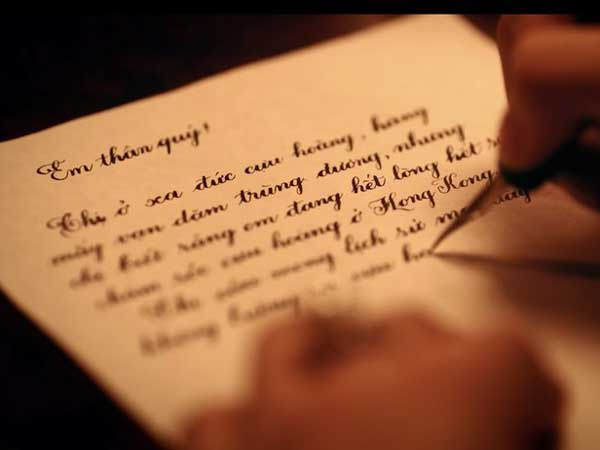 Em thân quý!
Chị ở xa đức cựu hoàng, hàng
mấy vạn dặm trùng dương, nhưng
chị biết rằng em đang hết lòng hết
chăm sóc cựu hoàng ở HongKong.
Chị cầm mong lịch sử mai
không lường cựu